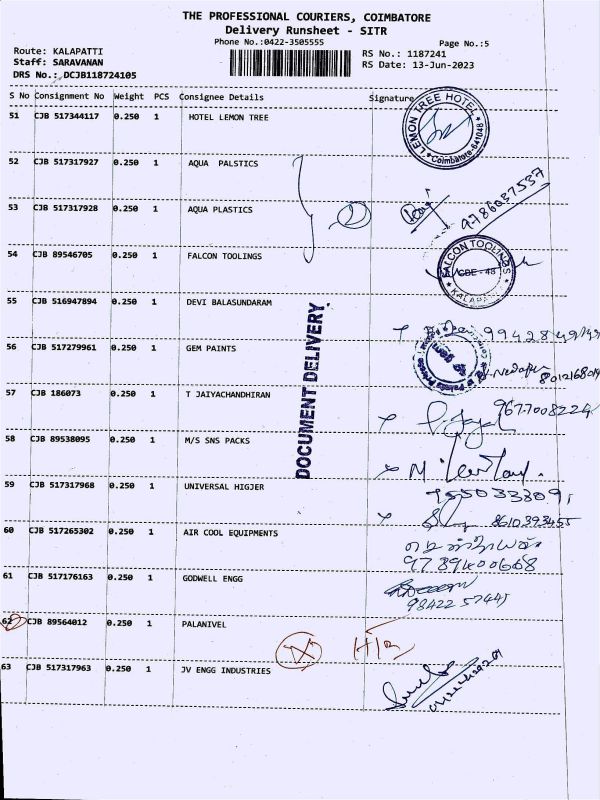 THE PROFESSIONAL COURIERS, COIMBATORE
Delivery Runsheet - SITR
Phone No.:0422-3505555
Page No.:5
Route: KALAPATTI
RS No.: 1187241
Staff: SARAVANAN
RS Date: 13-Jun-2023
DRS No.: DCJB118724105
S No Consignment No Weight PCS Consignee Details Signature
51 CJB 517344117 0.250 1 HOTEL LEMON TREE
LEMON TREE HOTEL
Coimbatore-641048
52 CJB 517317927 0.250 1 AQUA PALSTICS
53 CJB 517317928 0.250 1 AQUA PLASTICS
2
9786037537
54 CJB 89546705 0.250 1 FALCON TOOLINGS
FALCON TOOLINGS
CBE - 48
KALAPATTI
55 CJB 516947894 0.250 1 DEVI BALASUNDARAM
DOCUMENT DELIVERY
56 CJB 517279961 0.250 1 GEM PAINTS
gem
57 CJB 186073 0.250 1 T JAIYACHANDHIRAN
9677008224
58 CJB 89538095 0.250 1 M/S SNS PACKS
59 CJB 517317968 0.250 1 UNIVERSAL HIGJER
8610393455
60 CJB 517265302 0.250 1 AIR COOL EQUIPMENTS
9789400668
61 CJB 517176163 0.250 1 GODWELL ENGG
98422 57445
62 CJB 89564012 0.250 1 PALANIVEL
63 CJB 517317963 0.250 1 JV ENGG INDUSTRIES